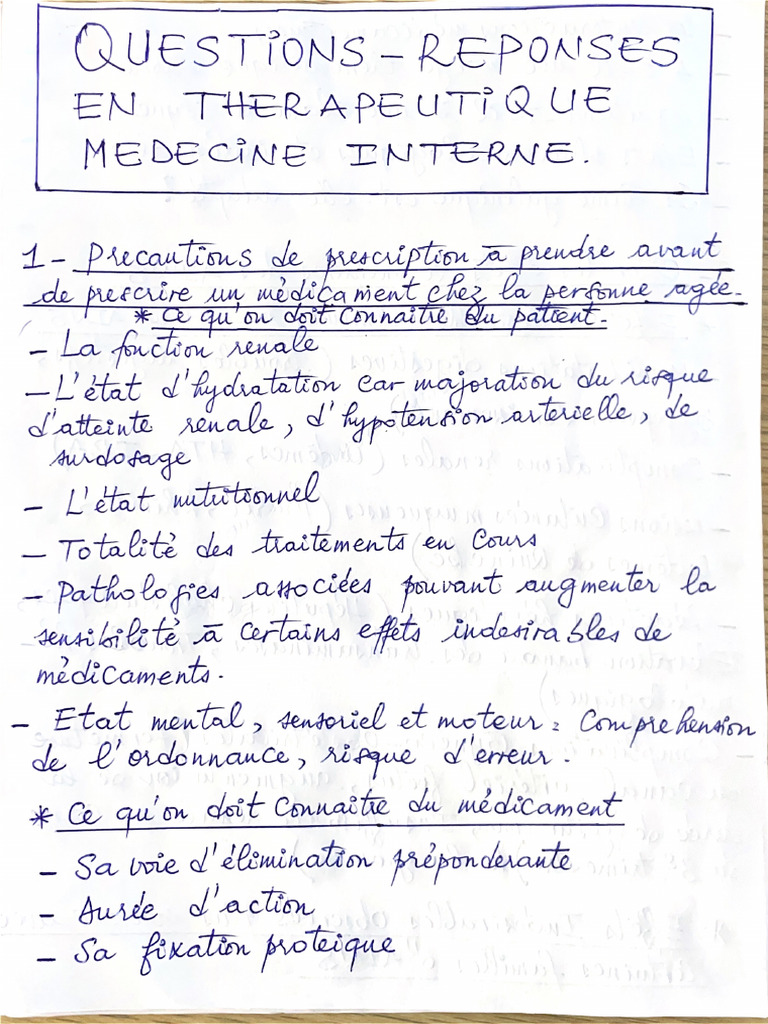 QUESTIONS - REPONSES
EN THERAPEUTIQUE
MEDECINE INTERNE.
1 - Precautions de prescription à prendre avant
de prescrire un médicament chez la personne agée.
* Ce qu'on doit connaitre du patient.
- La fonction renale
- L'état d'hydratation car majoration du risque
d'atteinte renale, d'hypotension arterielle, de
surdosage
- L'état nutritionnel
- Totalité des traitements en cours
- Pathologies associées pouvant augmenter la
sensibilité à certains effets indesirables de
médicaments.
- Etat mental, sensoriel et moteur : Comprehension
de l'ordonnance, risque d'erreur.
* Ce qu'on doit connaitre du médicament
- Sa voie d'élimination préponderante
- Durée d'action
- Sa fixation proteique